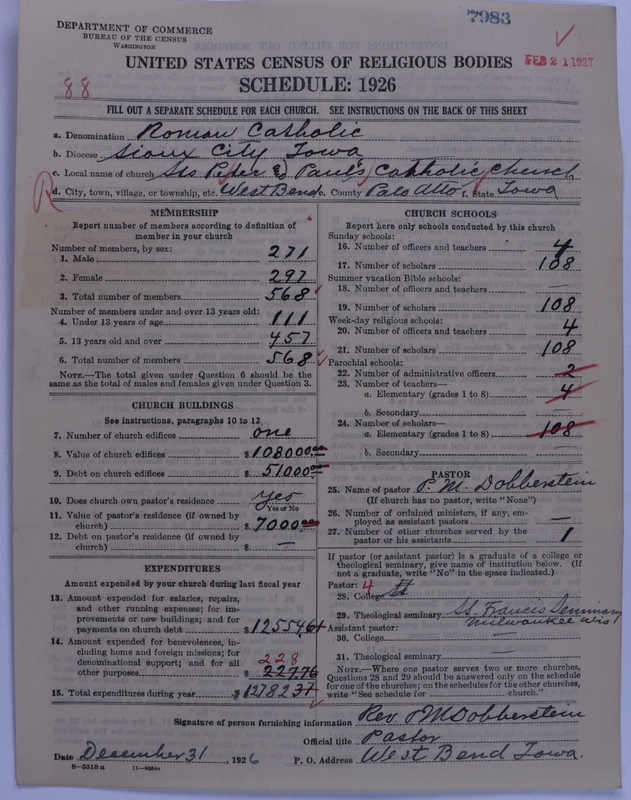 7983
DEPARTMENT OF COMMERCE
BUREAU OF THE CENSUS
WASHINGTON
UNITED STATES CENSUS OF RELIGIOUS BODIES
FEB 21 1927
88
SCHEDULE: 1926
FILL OUT A SEPARATE SCHEDULE FOR EACH CHURCH. SEE INSTRUCTIONS ON THE BACK OF THIS SHEET
a. Denomination Roman Catholic
b. Diocese Sioux City Iowa
c. Local name of church Sts Peter & Paul's Catholic Church
d. City, town, village, or township, etc. West Bend e. County Palo Alto f. State Iowa
MEMBERSHIP
Report number of members according to definition of
member in your church
Number of members, by sex:
1. Male 271
2. Female 297
3. Total number of members 568
Number of members under and over 13 years old:
4. Under 13 years of age 111
5. 13 years old and over 457
6. Total number of members 568
NOTE.—The total given under Question 6 should be the
same as the total of males and females given under Question 3.
CHURCH BUILDINGS
See instructions, paragraphs 10 to 12
7. Number of church edifices one
8. Value of church edifices $ 108000.00
9. Debt on church edifices $ 51000.00
10. Does church own pastor's residence yes
Yes or No
11. Value of pastor's residence (if owned by
church) $ 7000.00
12. Debt on pastor's residence (if owned by
church) $ —
EXPENDITURES
Amount expended by your church during last fiscal year
13. Amount expended for salaries, repairs,
and other running expenses; for im-
provements or new buildings; and for
payments on church debt $ 12554.61
14. Amount expended for benevolences, in-
cluding home and foreign missions; for
denominational support; and for all 228
other purposes $ 227.76
15. Total expenditures during year $ 12782 37
CHURCH SCHOOLS
Report here only schools conducted by this church
Sunday schools:
16. Number of officers and teachers 4
17. Number of scholars 108
Summer vacation Bible schools:
18. Number of officers and teachers —
19. Number of scholars 108
Week-day religious schools:
20. Number of officers and teachers 4
21. Number of scholars 108
Parochial schools:
22. Number of administrative officers 2
23. Number of teachers—
a. Elementary (grades 1 to 8) 4
b. Secondary —
24. Number of scholars—
a. Elementary (grades 1 to 8) 108
b. Secondary —
PASTOR
25. Name of pastor P. M. Dobberstein
(If church has no pastor, write "None")
26. Number of ordained ministers, if any, em-
ployed as assistant pastors —
27. Number of other churches served by the
pastor or his assistants 1
If pastor (or assistant pastor) is a graduate of a college or
theological seminary, give name of institution below. (If
not a graduate, write "No" in the space indicated.)
Pastor: 4
28. College St
29. Theological seminary St. Francis Seminary
Milwaukee Wis
Assistant pastor:
30. College —
31. Theological seminary —
NOTE.—Where one pastor serves two or more churches,
Questions 28 and 29 should be answered only on the schedule
for one of the churches; on the schedules for the other churches,
write "See schedule for ______ church."
Signature of person furnishing information Rev. P M Dobberstein
Official title Pastor
Date December 31, 1926 P. O. Address West Bend Iowa.
8—5318a 11—9054a